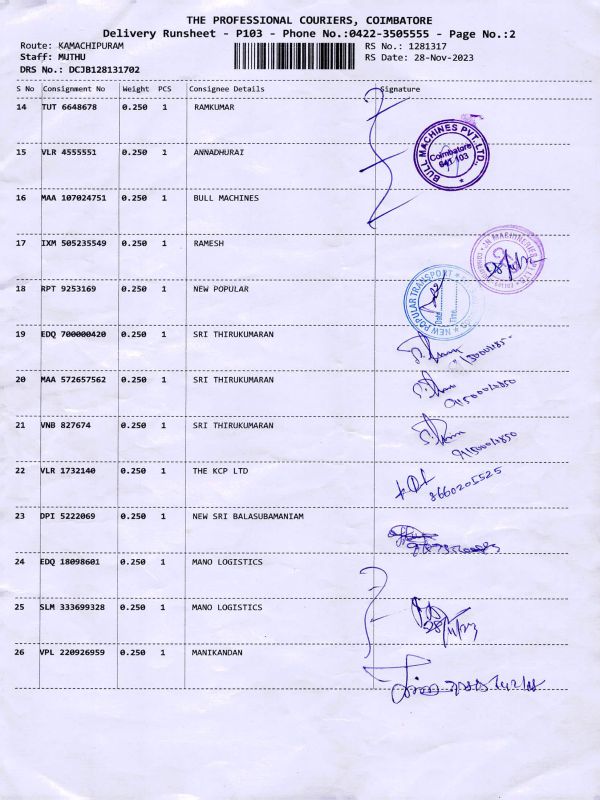 THE PROFESSIONAL COURIERS, COIMBATORE
Delivery Runsheet - P103 - Phone No.:0422-3505555 - Page No.:2
Route: KAMACHIPURAM RS No.: 1281317
Staff: MUTHU RS Date: 28-Nov-2023
DRS No.: DCJB128131702
S No Consignment No Weight PCS Consignee Details Signature
14 TUT 6648678 0.250 1 RAMKUMAR
BULL MACHINES PVT. LTD.,
Coimbatore
641 103
15 VLR 4555551 0.250 1 ANNADHURAI
16 MAA 107024751 0.250 1 BULL MACHINES
17 IXM 505235549 0.250 1 RAMESH
18 RPT 9253169 0.250 1 NEW POPULAR
NEW POPULAR TRANSPORT
Date
Time
19 EDQ 700000420 0.250 1 SRI THIRUKUMARAN
20 MAA 572657562 0.250 1 SRI THIRUKUMARAN
21 VNB 827674 0.250 1 SRI THIRUKUMARAN
22 VLR 1732140 0.250 1 THE KCP LTD
8660205525
23 DPI 5222069 0.250 1 NEW SRI BALASUBAMANIAM
24 EDQ 18098601 0.250 1 MANO LOGISTICS
25 SLM 333699328 0.250 1 MANO LOGISTICS
28/11/23
26 VPL 220926959 0.250 1 MANIKANDAN